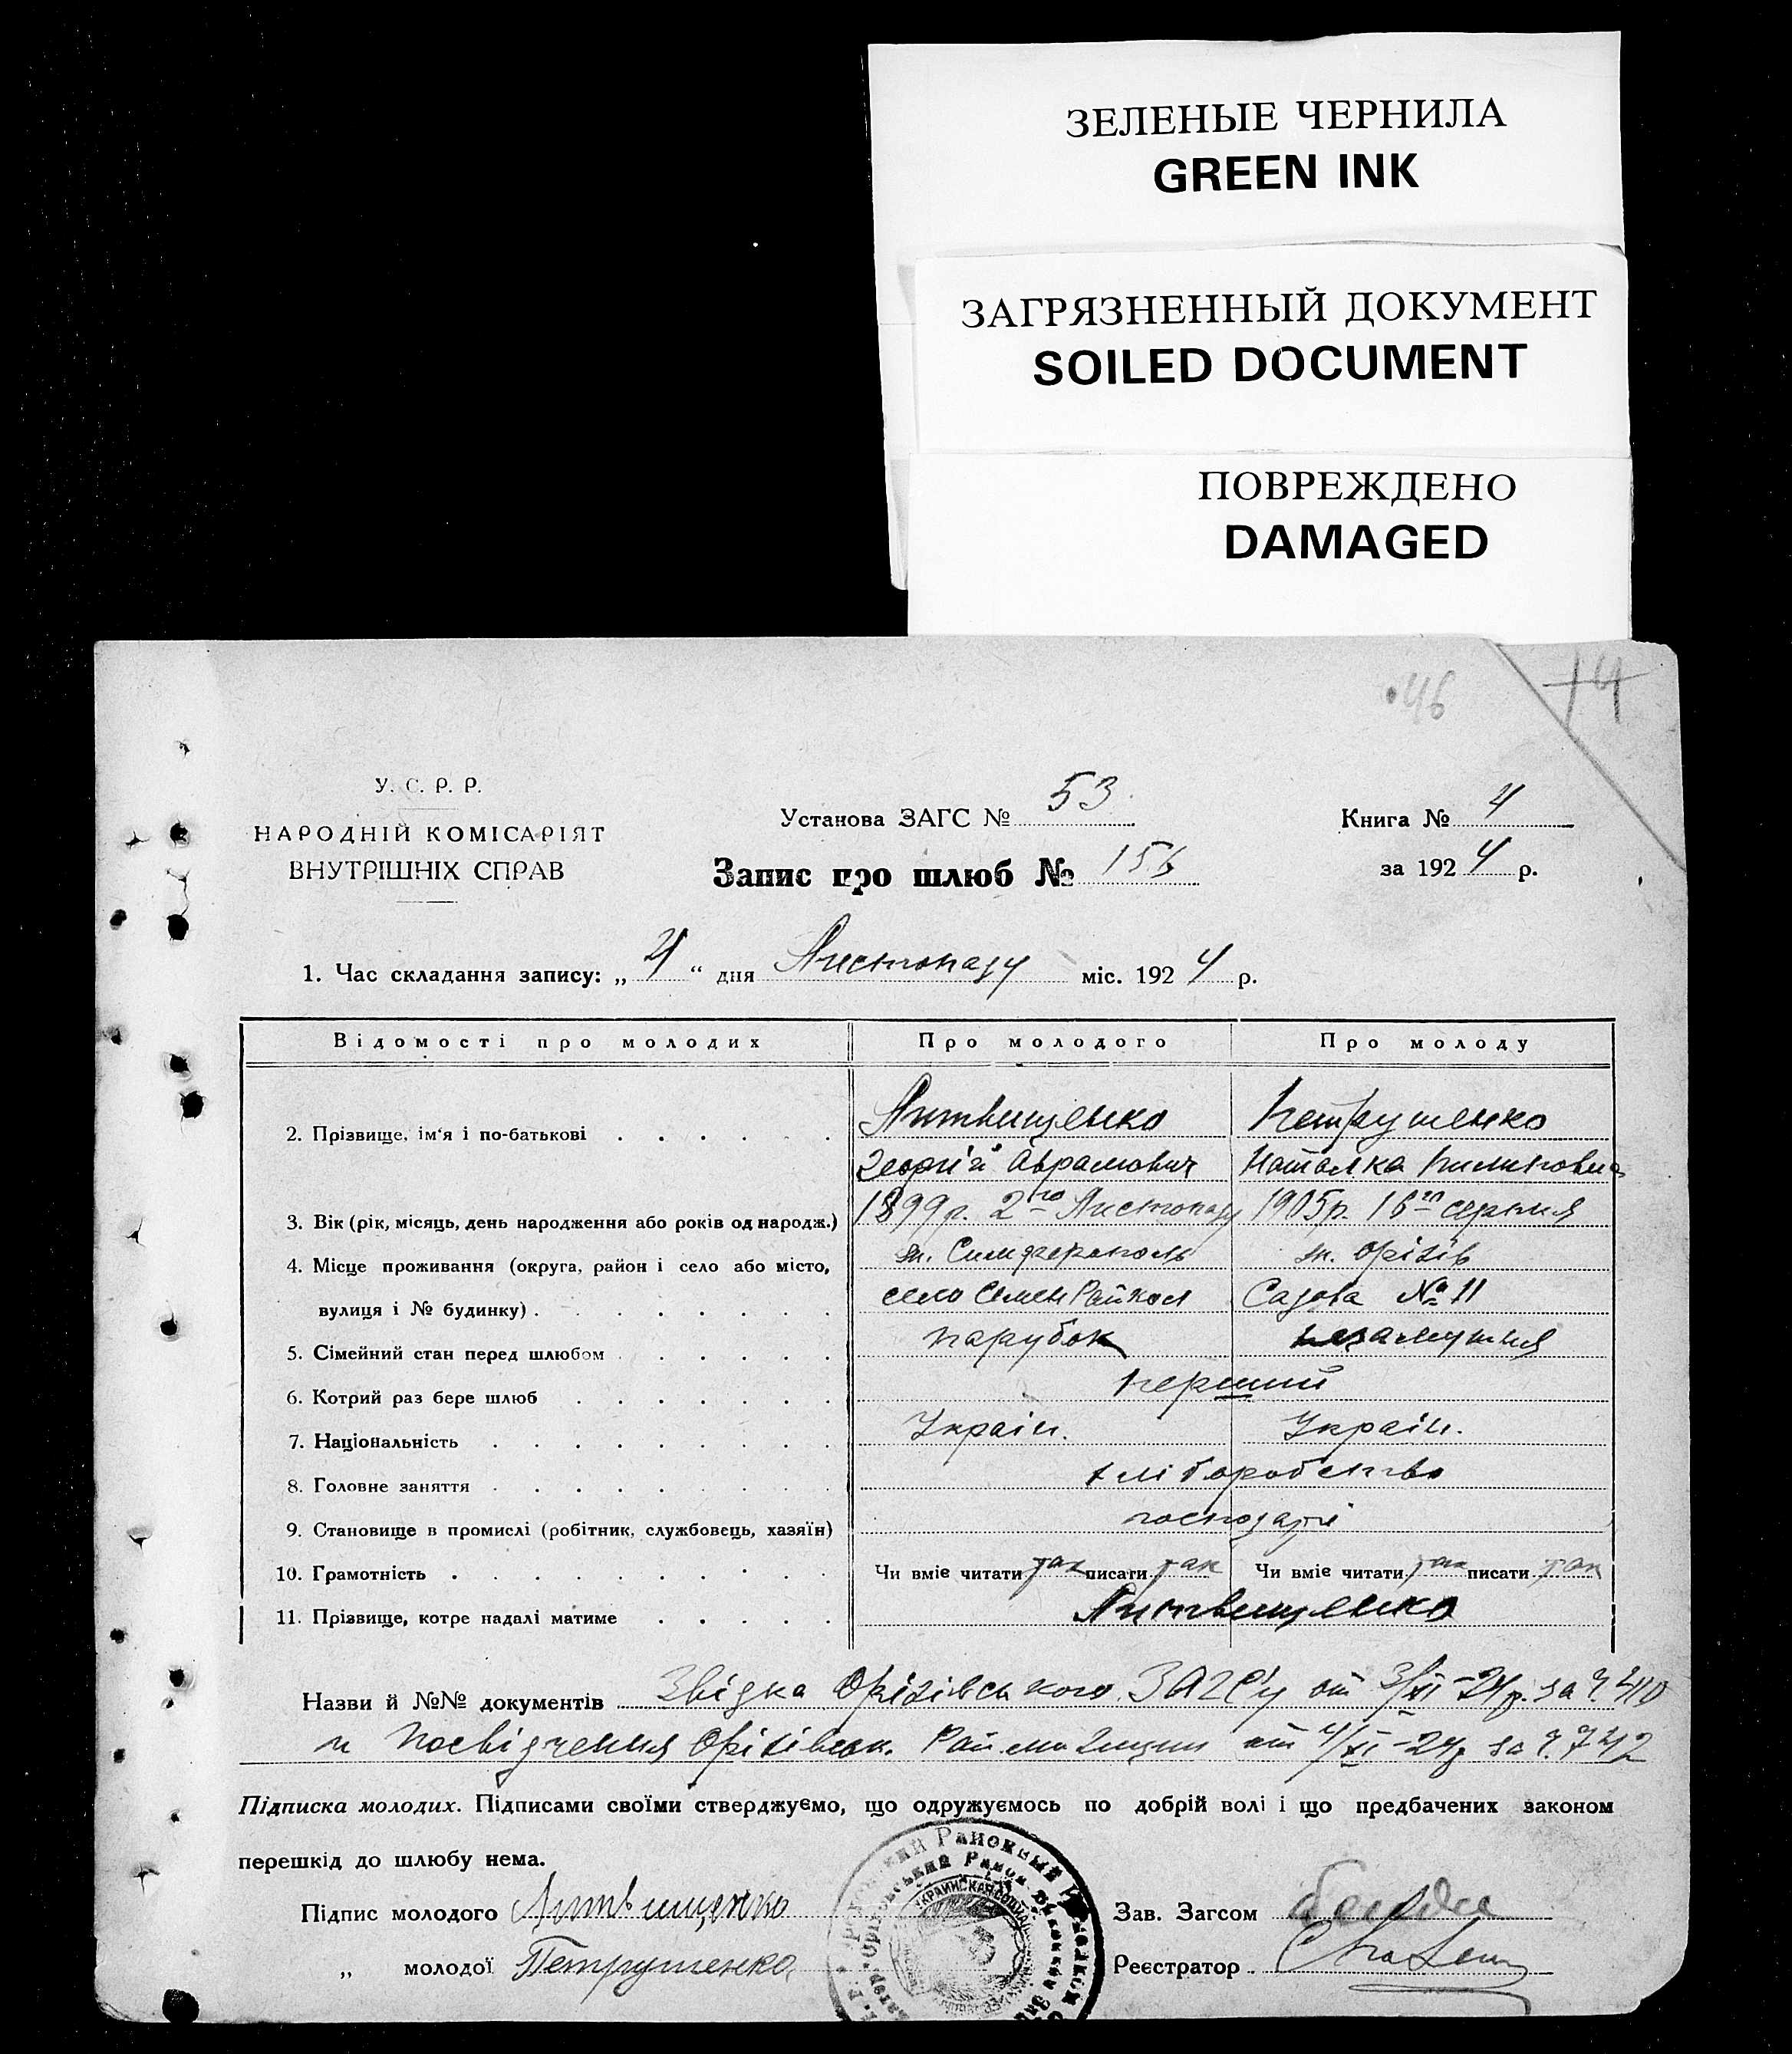 ЗЕЛЕНЫЕ ЧЕРНИЛА
GREEN INK
ЗАГРЯЗНЕННЫЙ ДОКУМЕНТ
SOILED DOCUMENT
ПОВРЕЖДЕНО
DAMAGED
46 14
У. С. Р. Р.
НАРОДНІЙ КОМІСАРІЯТ
ВНУТРІШНІХ СПРАВ
Установа ЗАГС № 53
Запис про шлюб № 156
Книга № 4
за 1924 р.
1. Час складання запису: „ 4 “ дня Листопаду міс. 1924 р.
Відомості про молодих Про молодого Про молоду
2. Прізвище, ім'я і по-батькові Литвищенко Петрушенко
Георгій Аврамович Наталка Пилиповна
3. Вік (рік, місяць, день народження або років од народж.) 1899 р. 2го Листопаду 1905 р. 16го серпня
4. Місце проживання (округа, район і село або місто, м. Симферополь м. Оріхів
вулиця і № будинку) село Садова № 11
5. Сімейний стан перед шлюбом парубок незамужня
6. Котрий раз бере шлюб перший
7. Національність Україн. Україн.
8. Головне заняття хліборобство
9. Становище в промислі (робітник, службовець, хазяїн) господарі
10. Грамотність Чи вміє читати так писати так Чи вміє читати так писати так
11. Прізвище, котре надалі матиме Литвищенко
Назви й №№ документів Звідка Оріхівського ЗАГСу от 3/XI-24 р. за ч. 410
и Посвідчення Оріхівськ. от 4/XI-24 р. за ч. 742
Підписка молодих. Підписами своїми стверджуємо, що одружуємось по добрій волі і що предбачених законом
перешкід до шлюбу нема.
Підпис молодого Литвищенко
„ молодої Петрушенко
Зав. Загсом
Реєстратор